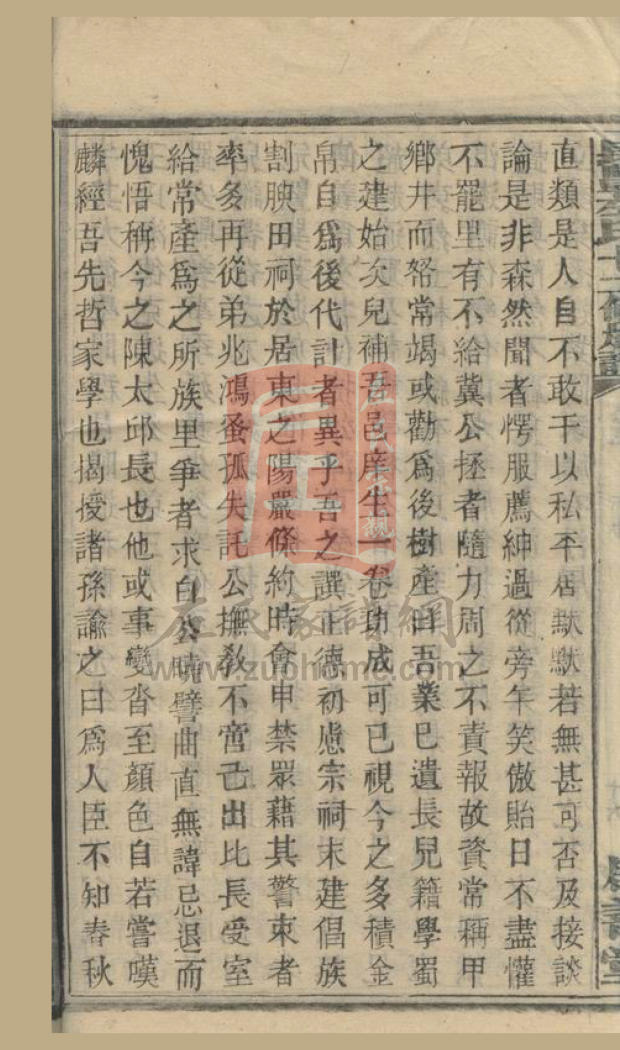 直類是人自不敢干以私平居默默若無甚可否及接談
論是非森然聞者愕服薦紳過從旁午笑傲貽日不盡懽
不罷里有不給冀公拯者隨力周之不責報故資常稱甲
鄉井而帑常竭或勸為後樹產曰吾業已遺長兒籍學蜀
之建始次兒補吾邑庠生一卷功成可已視今之多積金
帛自為後代計者異乎吾之譔正德初慮宗祠未建倡族
割腴田祠於居東之陽嚴條約時會申禁眾藉其警束者
率多再從弟兆鴻蚤孤失託公撫教不啻己出比長受室
給常產為之所族里爭者求白公曉譬曲直無諱忌退而
愧悟稱今之陳太邱長也他或事變沓至顏色自若嘗嘆
麟經吾先哲家學也揭授諸孫諭之曰為人臣不知春秋
左氏家譜網
www.zuohome.com